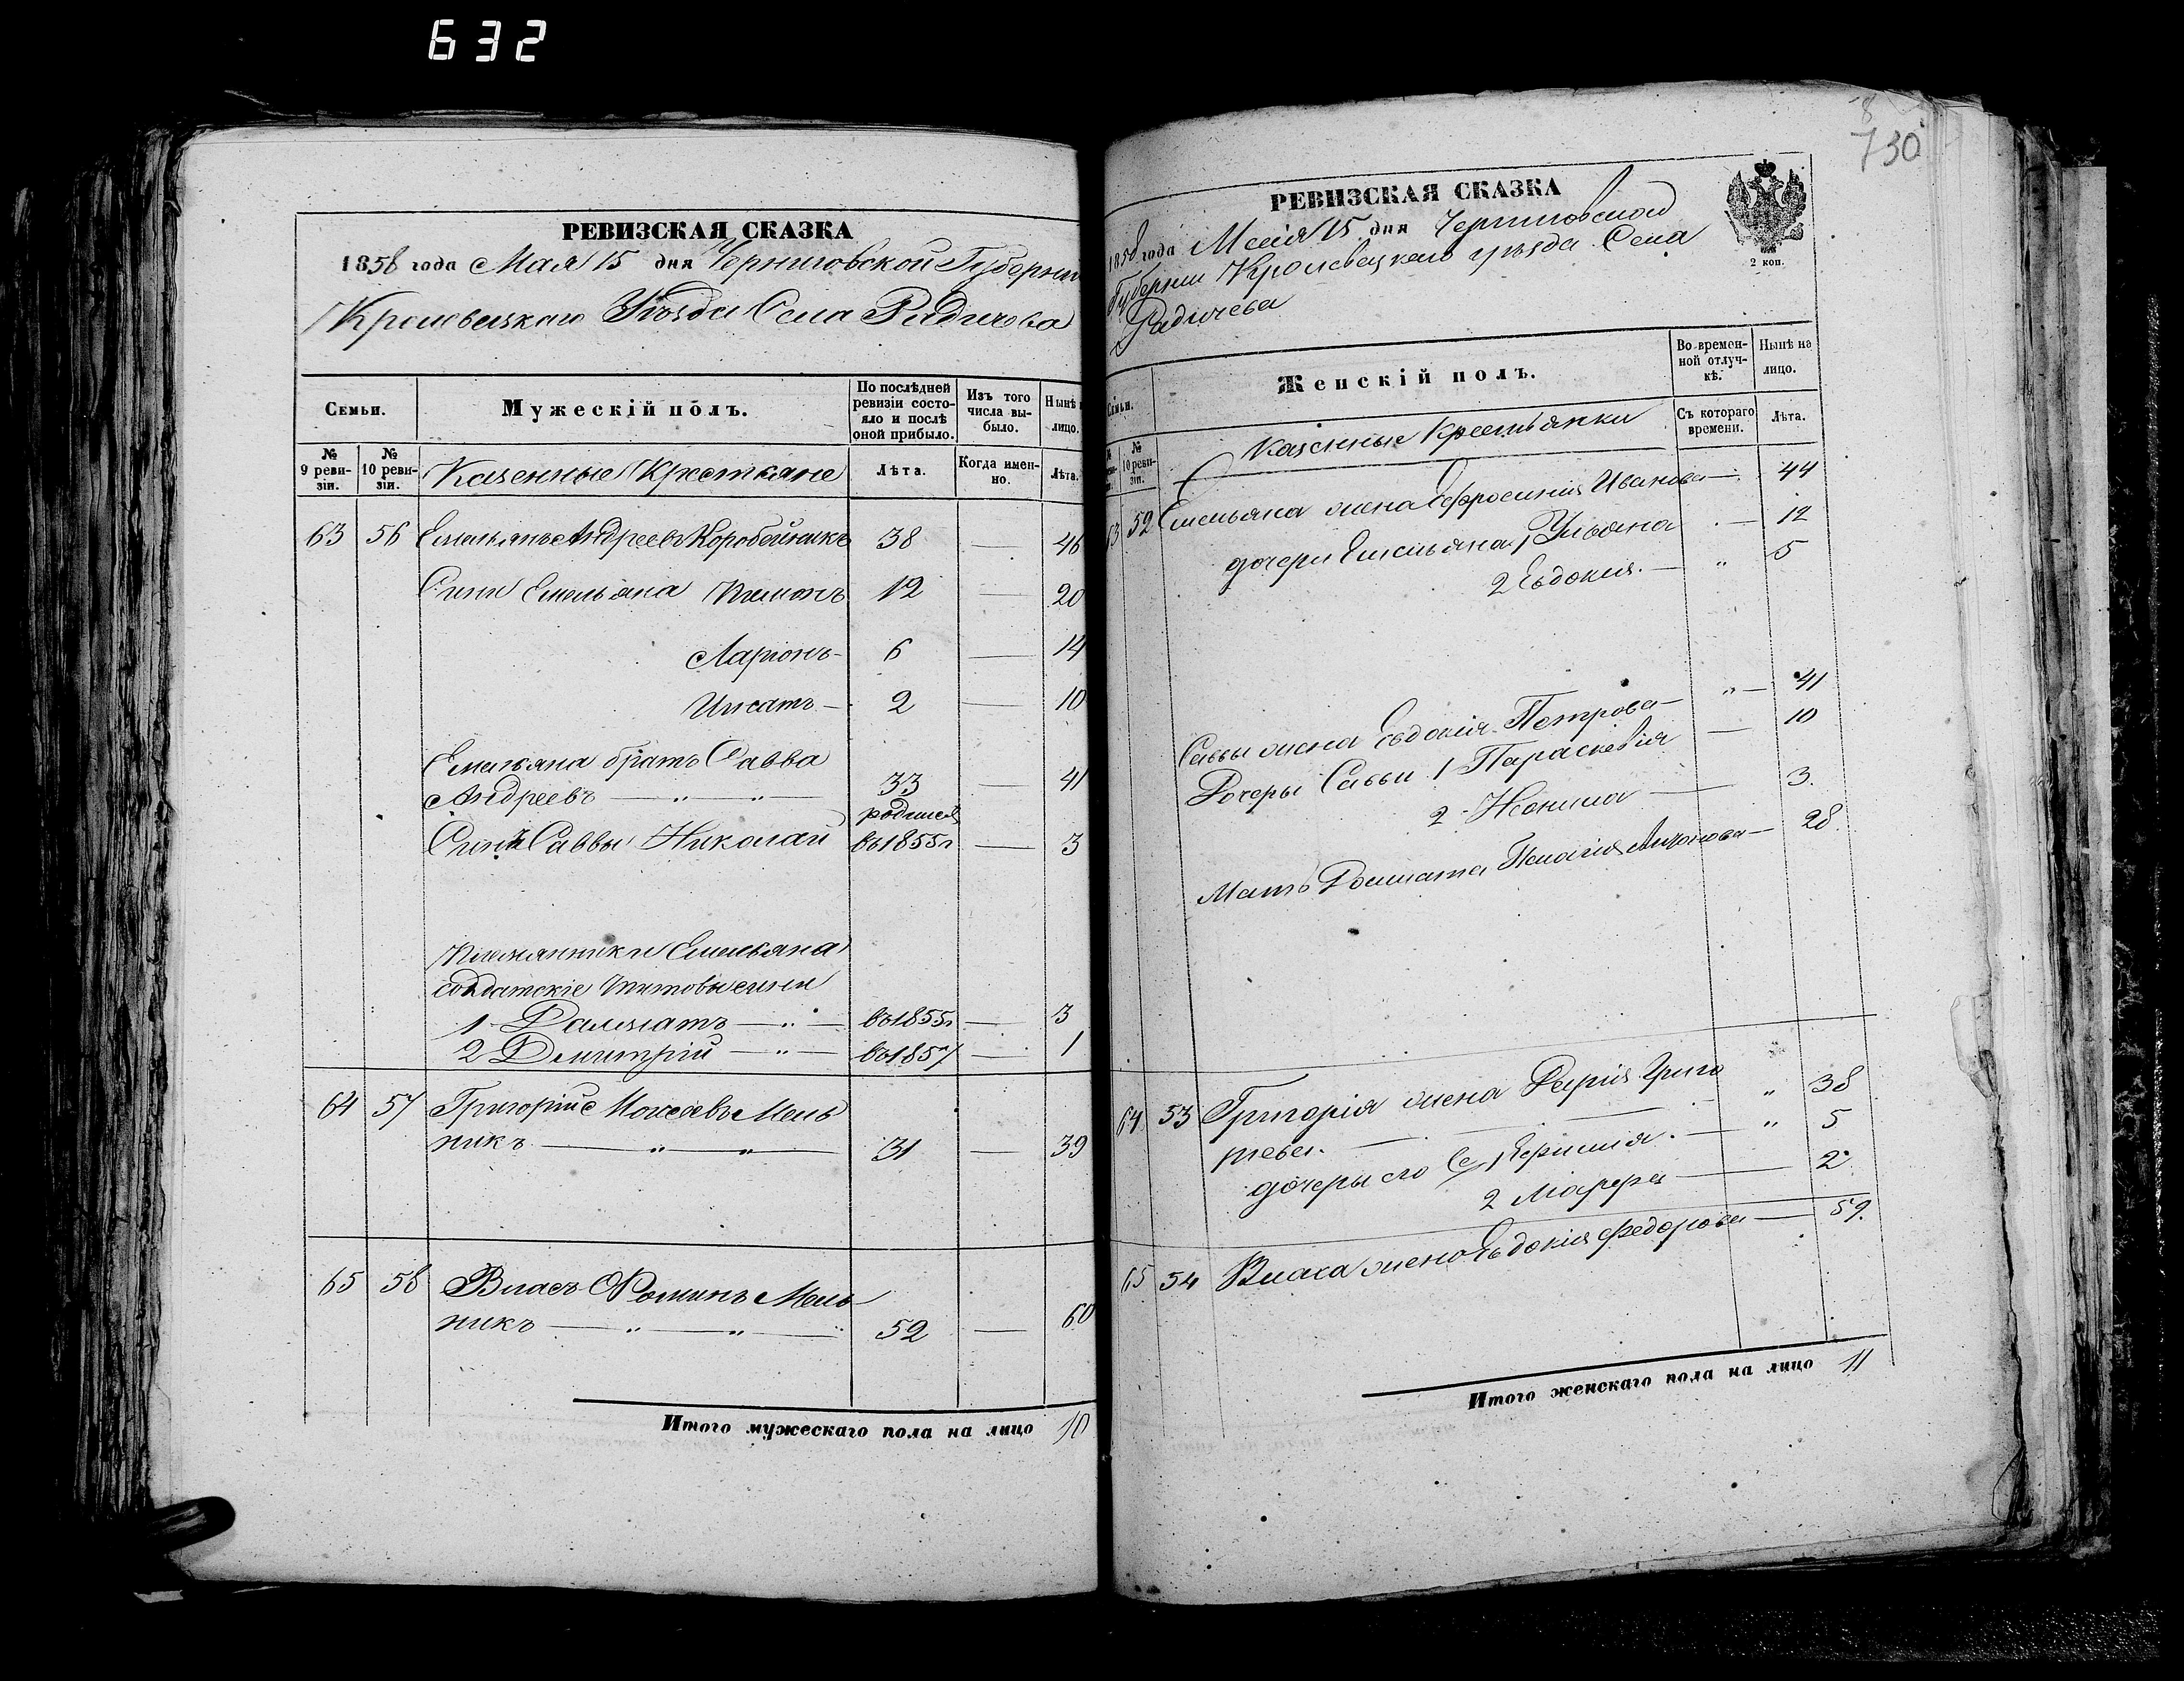 632
РЕВИЗСКАЯ СКАЗКА
1858 года Мая 15 дня Черниговской Губерніи
Кролевецкаго Уѣзда Села Радичова
Семьи.
Мужескій полъ.
По послѣдней ревизіи состояло и послѣ оной прибыло.
Изъ того числа выбыло.
Нынѣ
лицо.
№ 9 ревизіи.
№ 10 ревизіи.
Казенные Крестьяне
Лѣта.
Когда именно.
Лѣта.
63 56 Емельянъ Андреевъ Коробейникъ 38 — 46
Сыны Емельяна 12 — 20
Ларіонъ — 6 — 14
Игнатъ — 2 — 10
Емельяна братъ Савва
Андреевъ — " — " 33 — 41
родился
Сынъ Саввы Николай въ 1855 г — 3
Племянники Емельяна
солдатскіе Титовы сыны
1 Далматъ — " — въ 1855 г — 3
2 Дмитрій — " — въ 1857 — 1
64 57 Григорій Мель
никъ — " — " — 31 — 39
65 58 Власъ Фоминъ Мель
никъ — " — " — 52 — 60
Итого мужескаго пола на лицо 10
730
РЕВИЗСКАЯ СКАЗКА
2 коп.
1858 года Маія 15 дня Черниговской
Губерніи Кролевецкаго уѣзда Села
Радичева
Семьи.
Женскій полъ.
Во временной отлучкѣ.
Нынѣ на лицо.
№ 10 ревизіи.
Казенные Крестьянки
Съ котораго времени.
Лѣта.
63 52 Емельяна жена Ефросинія Иванова — 44
дочери Емельяна 1 Ульяна — 12
2 Евдокія — " 5
Саввы жена Евдокія Петрова — " — 41
Дочеры Саввы 1 Параскевія — 10
2 — 3.
Мать Далмата Пелагія — 28.
64 53 Григорія жена Дарія Григо
рьева. — " 38
дочеры его 1 — " 5
2 Марфа — 2
65 54 Власа жена Евдокія Федорова — 59.
Итого женскаго пола на лицо 11